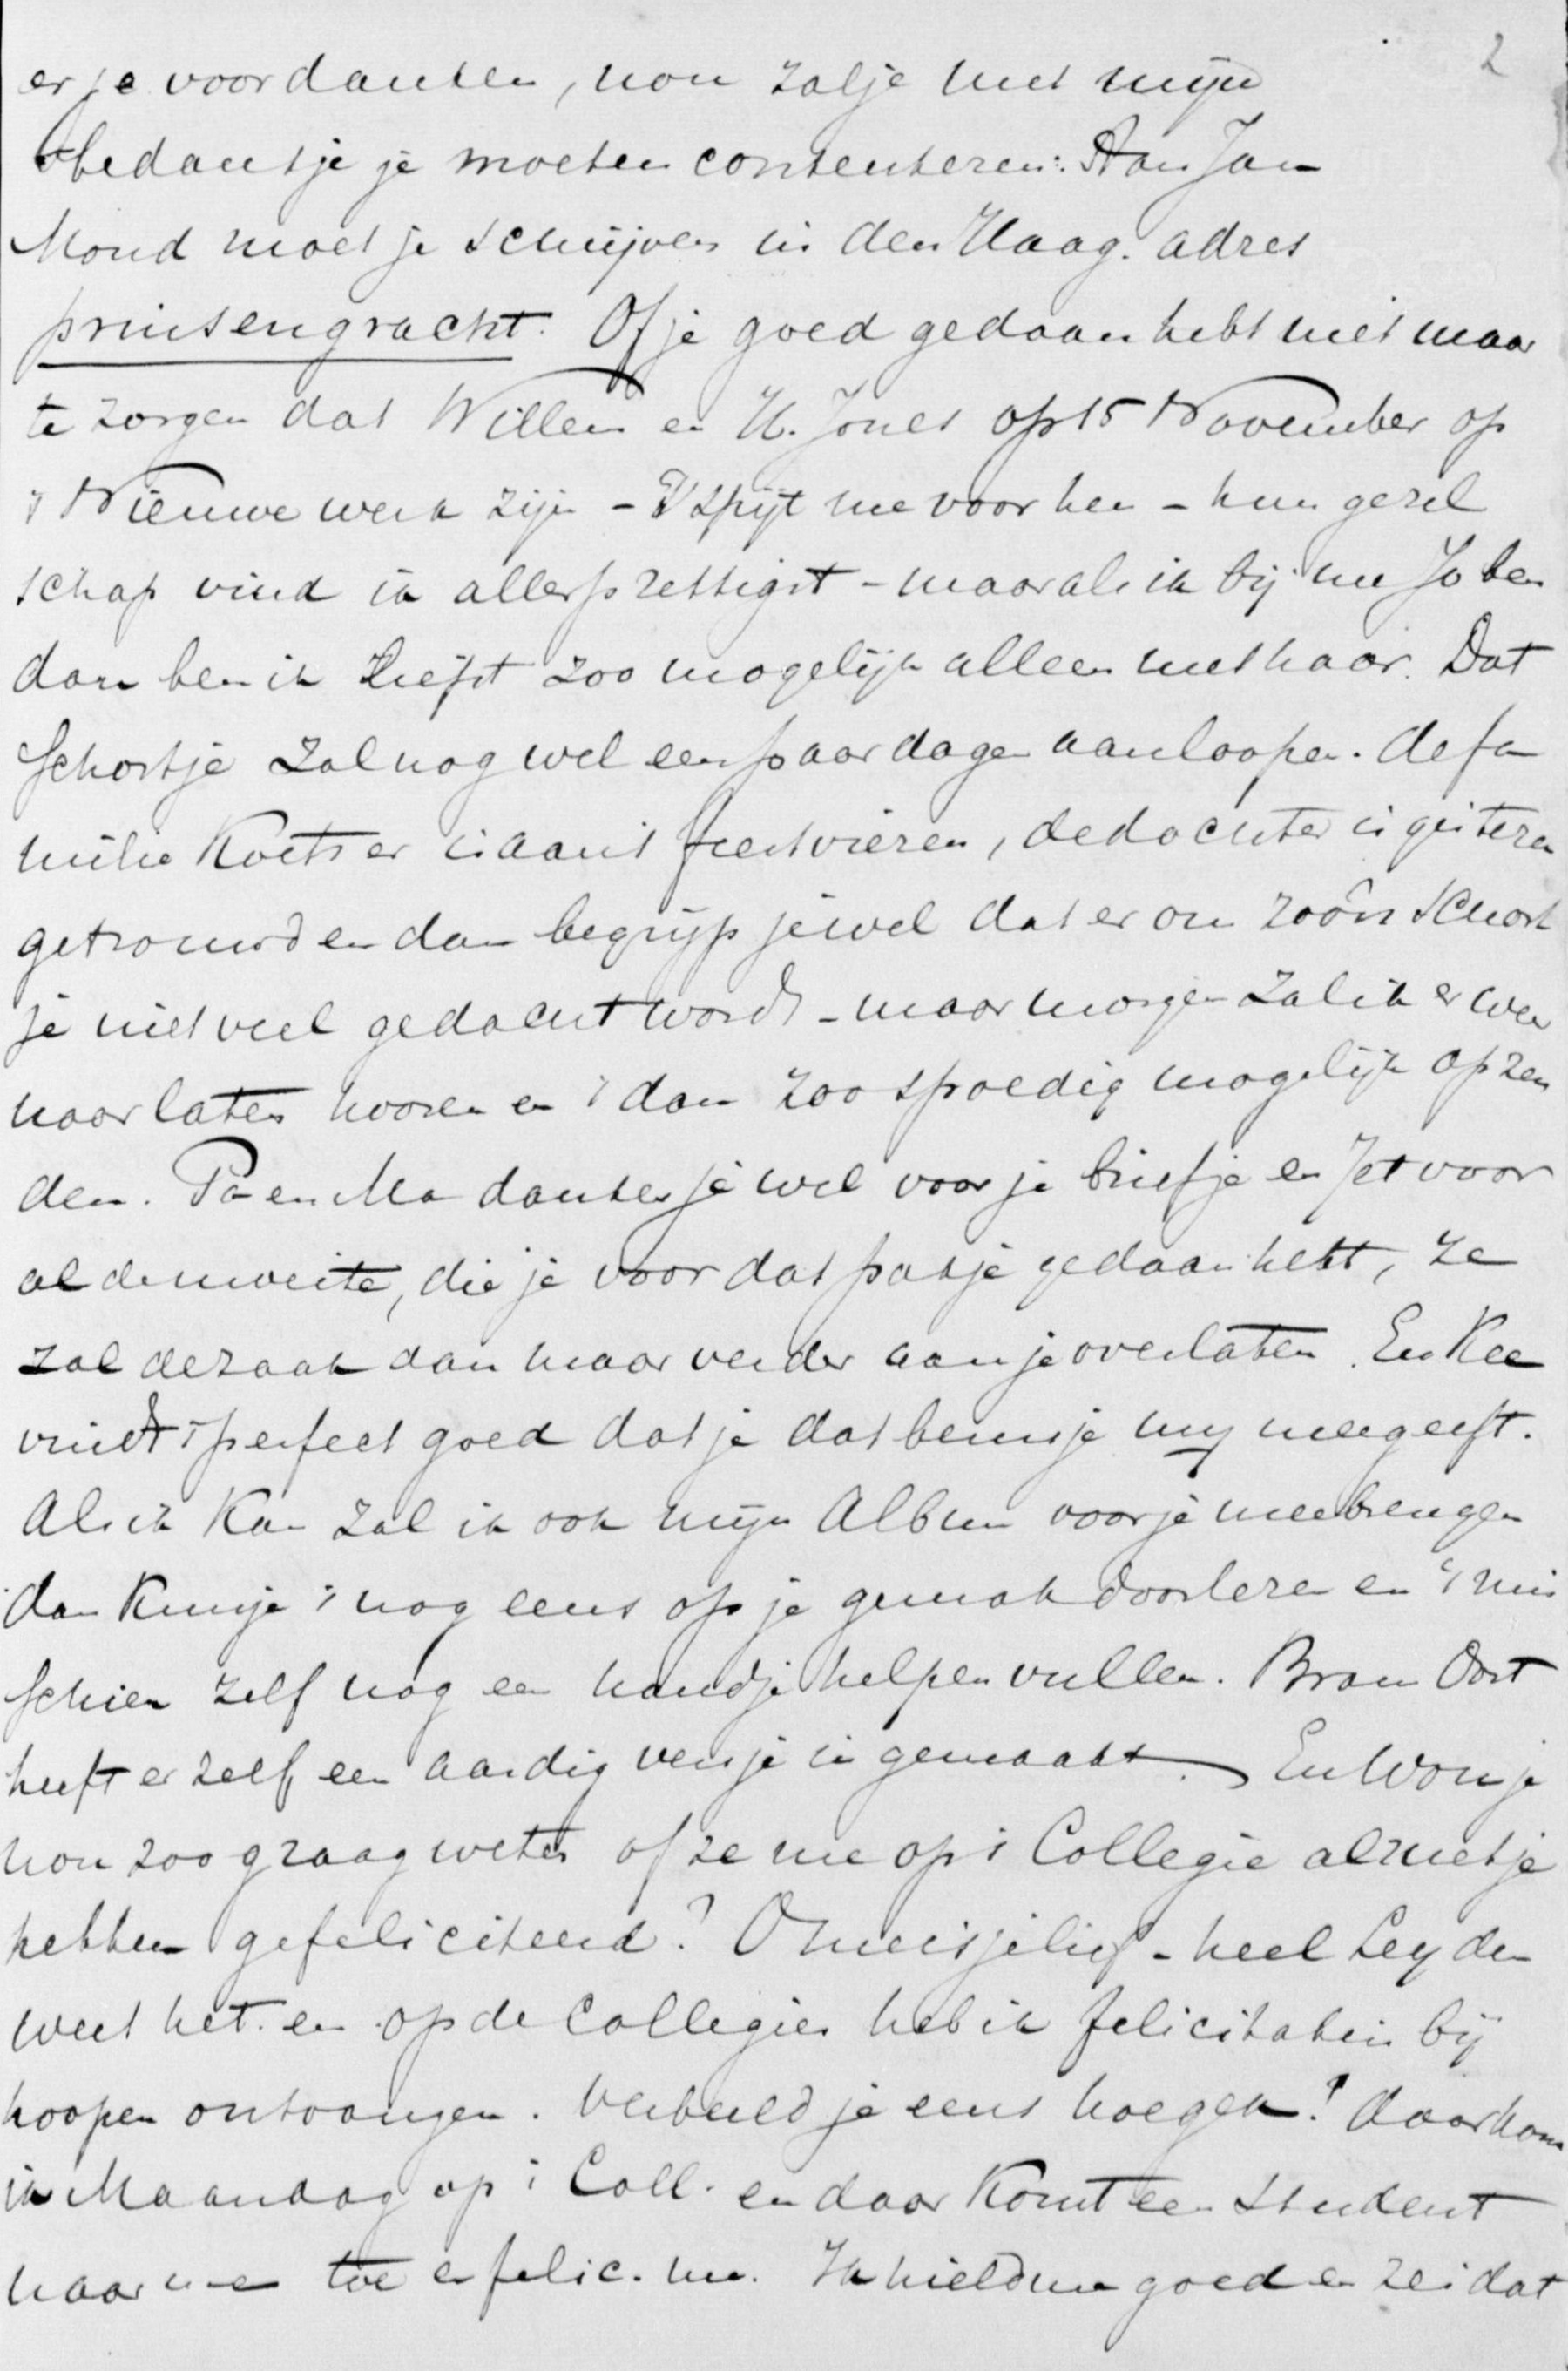 2
er je voor danken, nou zal je met mijn
bedankje je moeten contenteren. Aan Jan
Mond moet je schrijven in den Haag. adres
prinsengracht. Of je goed gedaan hebt met maar
te zorgen dat Willem en H. Jones op 15 November op
't Nieuwe werk zijn - 't spijt me voor hen - hun gezel
schap vind ik allerprettigst - maar als ik bij me Jo ben
dan ben ik liefst zoo mogelijk alleen met haar. Dat
schortje zal nog wel een paar dagen aanloopen. de fa
milie Koetser is aan 't feestvieren, de dochter is gisteren
getrouwd en dan begrijp je wel dat er om zoo'n schort
je niet veel gedacht wordt - maar morgen zal ik er weer
naar laten hooren en 't dan zoo spoedig mogelijk opzen
den. Pa en Ma danken je wel voor je briefje en Jet voor
al de moeite, die je voor dat patje gedaan hebt, ze
zal de zaak dan maar verder aan je overlaten. En Kee
vindt 't perfect goed dat je dat beursje mij meegeeft.
Als ik kan zal ik ook mijn Album voor je meebrengen
dan kun je 't nog eens op je gemak doorlezen en 't mis
schien zelf nog een handje helpen vullen. Bram Oort
heeft er zelf een aardig versje in gemaakt. En wou je
nou zoo graag weten of ze me op 't Collegie al met je
hebben gefeliciteerd? O meisjelief - heel Leyden
weet het. en op de Collegies heb ik felicitaties bij
hoopen ontvangen. Verbeeld je eens hoe gek! daar kom
ik Maandag op 't Coll. en daar komt een student
naar me toe en felic. me. Ik hield me goed en zei dat